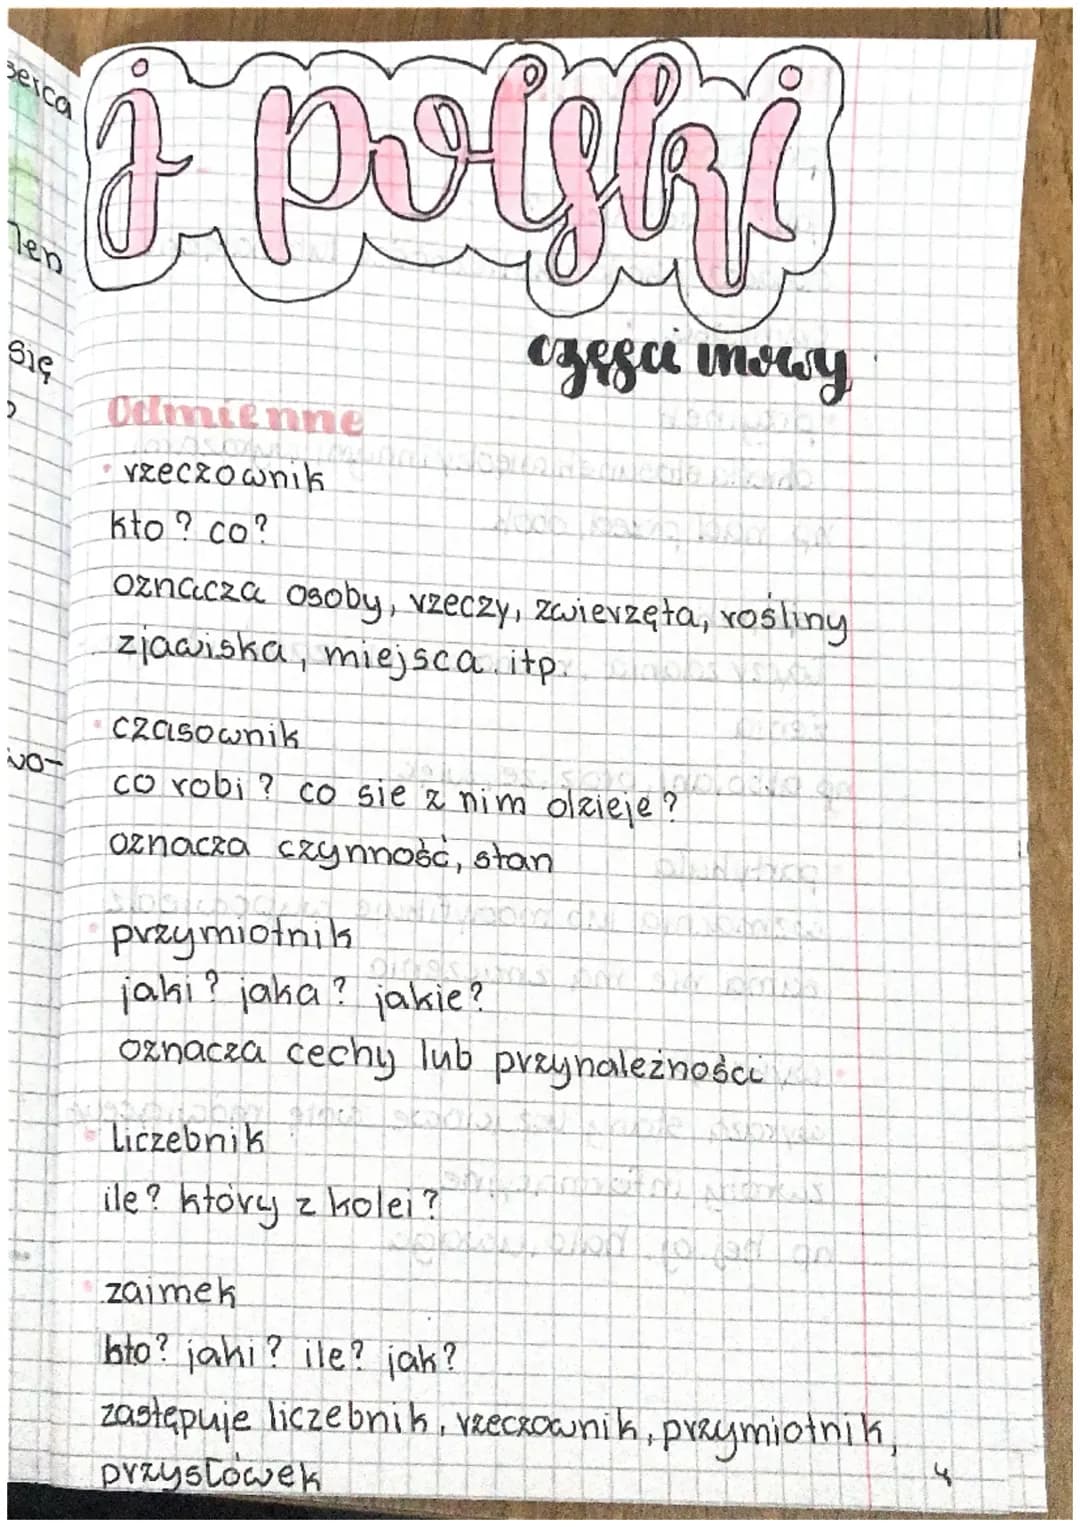 j polski
części mowy
Odmienne
• rzeczownik
kto? co?
oznacza osoby, rzeczy, zwierzęta, rośliny
zjawiska, miejsca itp.
• czasownik
co robi? co sie z nim dzieje?
oznacza czynność, stan
• przymiotnik
jaki? jaka? jakie?
oznacza cechy lub przynależności
• liczebnik
ile? który z kolei?
• zaimek
kto? jaki? ile? jak?
zastępuje liczebnik, rzeczownik, przymiotnik,
przysłówek
4
się
wo-